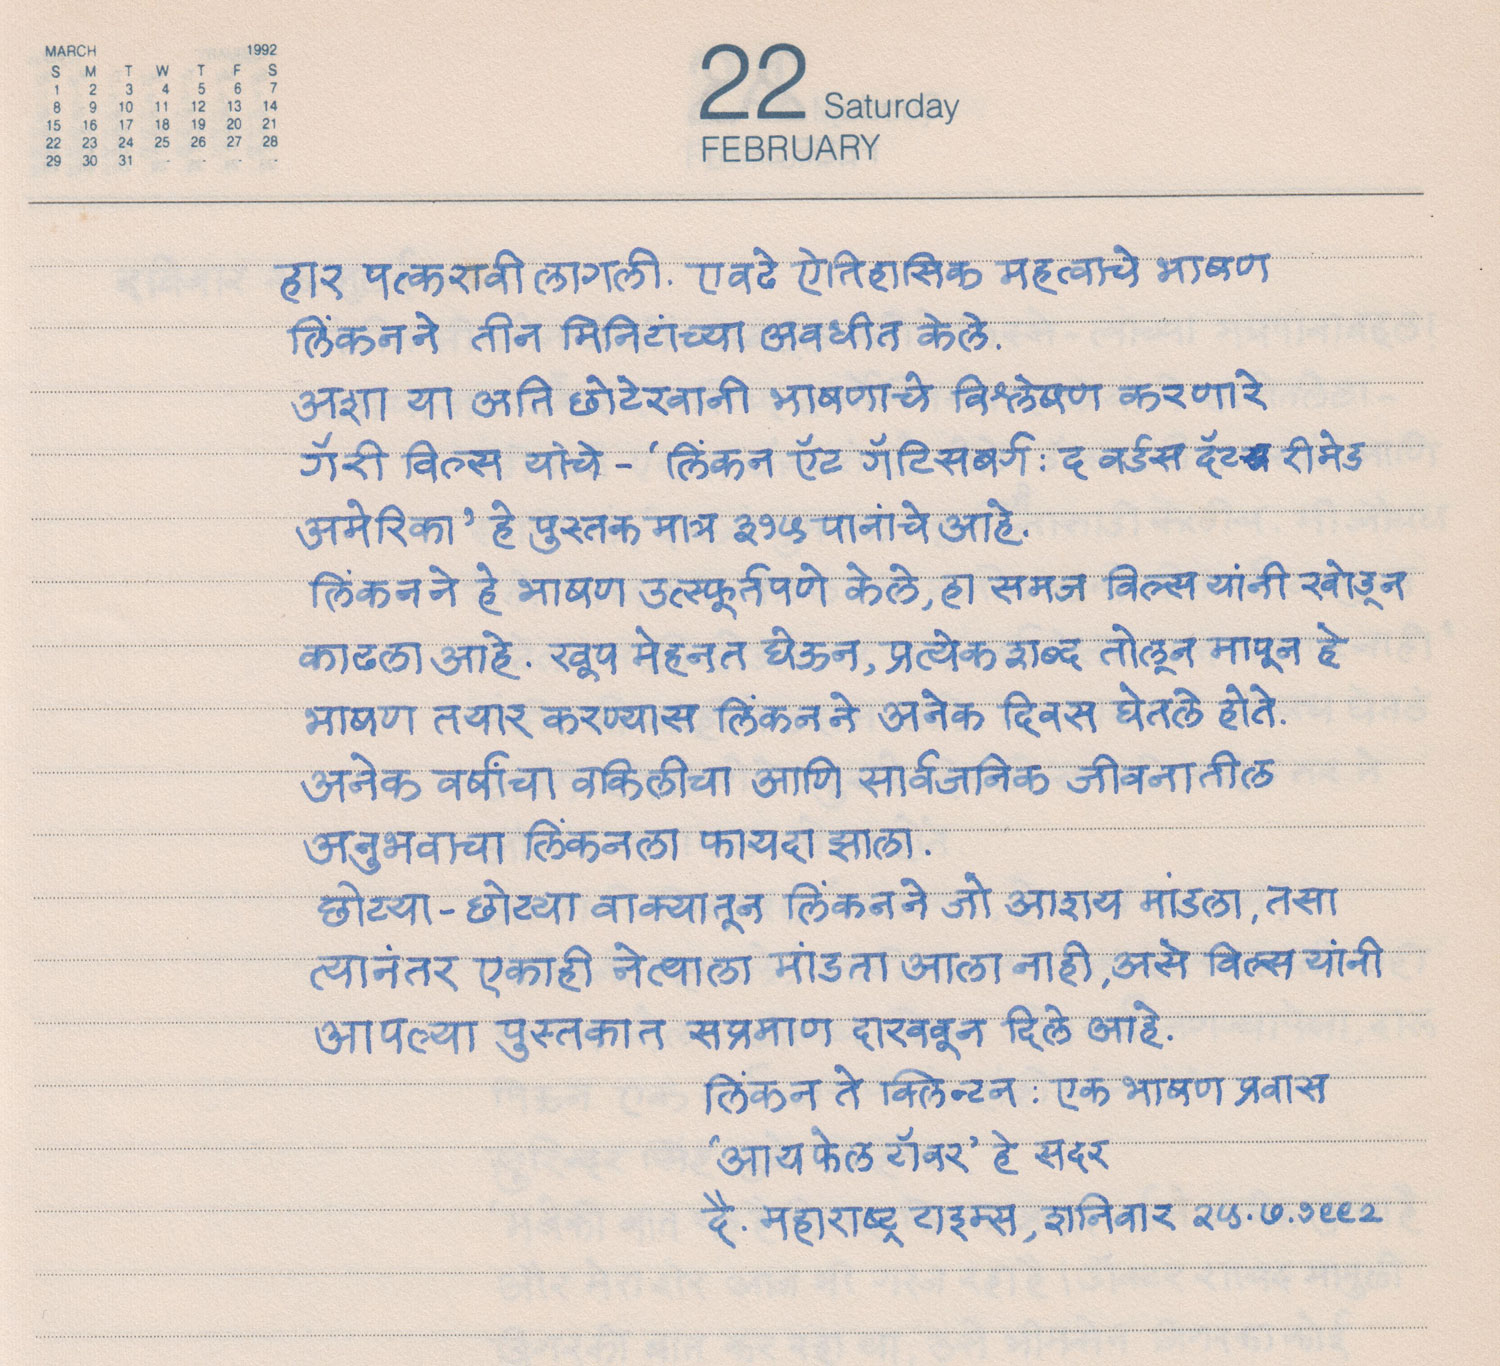 MARCH 1992
S M T W T F S
1 2 3 4 5 6 7
8 9 10 11 12 13 14
15 16 17 18 19 20 21
22 23 24 25 26 27 28
29 30 31 · · · ·
22 Saturday
FEBRUARY
हार पत्करावी लागली. एवढे ऐतिहासिक महत्वाचे भाषण
लिंकनने तीन मिनिटांच्या अवधीत केले.
अशा या अति छोटेखानी भाषणाचे विश्लेषण करणारे
गॅरी विल्स यांचे - ‘लिंकन ऍट गॅटिसबर्ग : द वर्डस दॅट रीमेड
अमेरिका’ हे पुस्तक मात्र ३१५ पानांचे आहे.
लिंकनने हे भाषण उत्स्फूर्तपणे केले, हा समज विल्स यांनी खोडून
काढला आहे. खूप मेहनत घेऊन, प्रत्येक शब्द तोलून मापून हे
भाषण तयार करण्यास लिंकनने अनेक दिवस घेतले होते.
अनेक वर्षांचा वकिलीचा आणि सार्वजनिक जीवनातील
अनुभवाचा लिंकनला फायदा झाला.
छोट्या - छोट्या वाक्यातून लिंकनने जो आशय मांडला, तसा
त्यानंतर एकाही नेत्याला मांडता आला नाही, असे विल्स यांनी
आपल्या पुस्तकात सप्रमाण दाखवून दिले आहे.
लिंकन ते क्लिन्टन : एक भाषण प्रवास
‘आयफेल टॉवर’ हे सदर
दै. महाराष्ट्र टाइम्स, शनिवार २५.७.१९९२